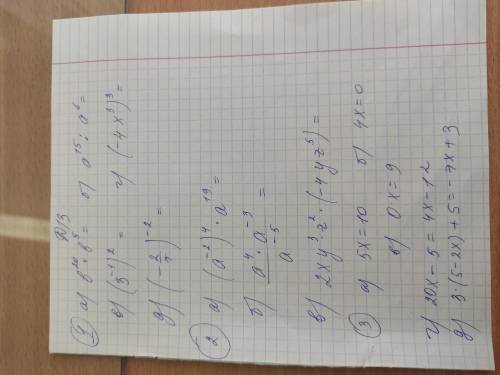 Д/З
① а) b²⁰ · b⁵ = б) a¹⁵ : a⁶ =
в) (3⁻¹)² = г) (-4x³)³ =
д) (-2/7)⁻² =
② а) (a⁻²)⁴ · a¹⁹ =
б) (a⁴ · a⁻³)/a⁻⁵ =
в) 2xy³z² · (-4yz⁵) =
③ а) 5x=10 б) 4x=0
в) 0x=9
г) 20x-5=4x-12
д) 3·(5-2x)+5=-7x+3